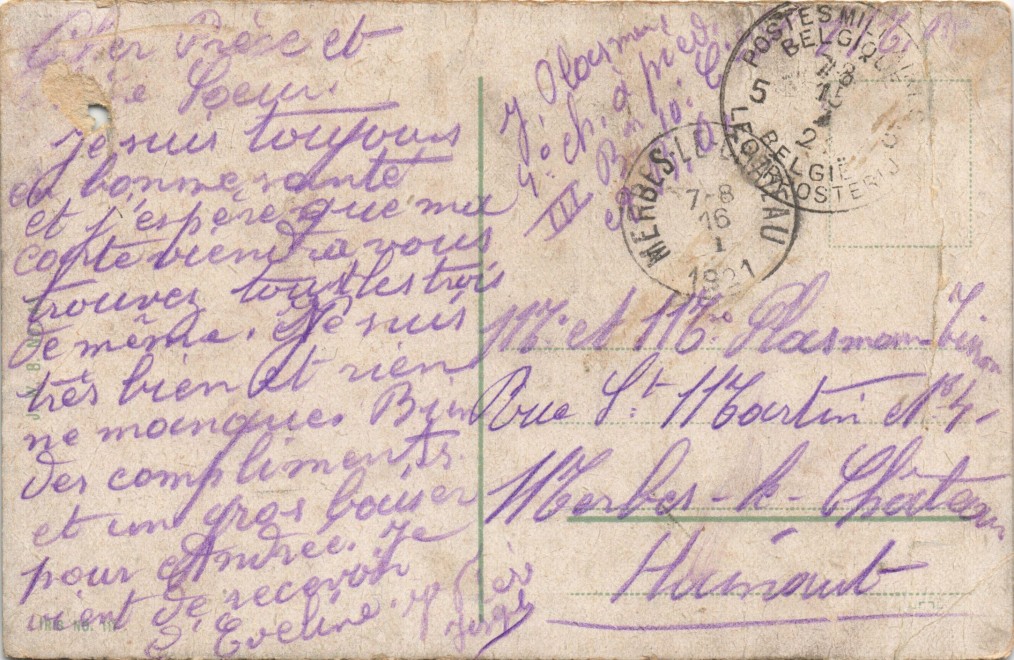 Cher Frère et
Soeur.
Je suis toujours
en bonne santé
et j'espère que ma
carte viendra vous
trouvez tous les trois
de même. Je suis
très bien et rien
ne manque. Bien
des compliments
et un gros baiser
pour Andrée. Je
vient de recevoir
d'Eveline.
J. Plasman
4e ch. à pied
III Bn 10e C
POSTES MILITAIRES
BELGIQUE
7-8
5
2
BELGIË
LEGERPOSTERIJ
5
MERBES-LE-CHATEAU
7-8
16
I
1921
Mr et Me Plasman
Rue St Martin No 4
Merbes-le-Château
Hainaut